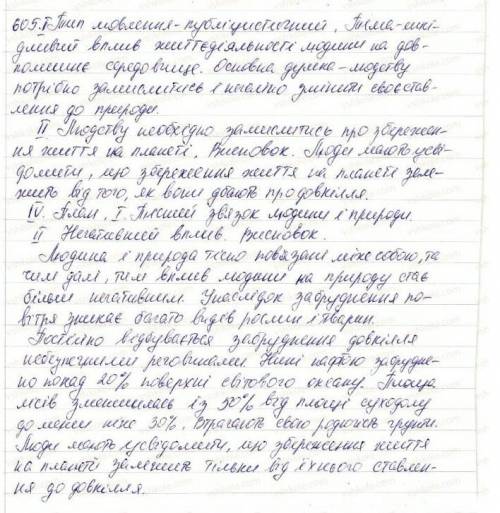 605. I Тип мовлення - публіцистичний. Тема - шкі-
дливий вплив життєдіяльності людини на дов-
колишнє середовище. Основна думка - людству
потрібно замислитись і негайно змінити своє став-
лення до природи.
II Людству необхідно замислитись про збережен-
ня життя на планеті. Висновок. Люди мають усві-
домити, що збереження життя на планеті зале-
жить від того, як вони дбають про довкілля.
IV. План. I. Тісний звязок людини і природи.
II Негативний вплив. Висновок.
Людина і природа тісно пов'язані між собою, та
чим далі, тим вплив людини на природу стає
більш негативним. Унаслідок забруднення по-
вітря зникає багато видів рослин і тварин.
Постійно відбувається забруднення довкілля
небезпечними речовинами. Нині нафтою забрудне-
но понад 20% поверхні світового океану. Площа
лісів зменшилась із 50% від площі суходолу
до менш ніж 30%. Втрачають свою родючість ґрунти.
Люди мають усвідомити, що збереження життя
на планеті залежить тільки від їхнього ставлен-
ня до довкілля.